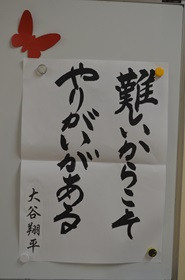 難しいからこそ
やりがいがある
大谷翔平